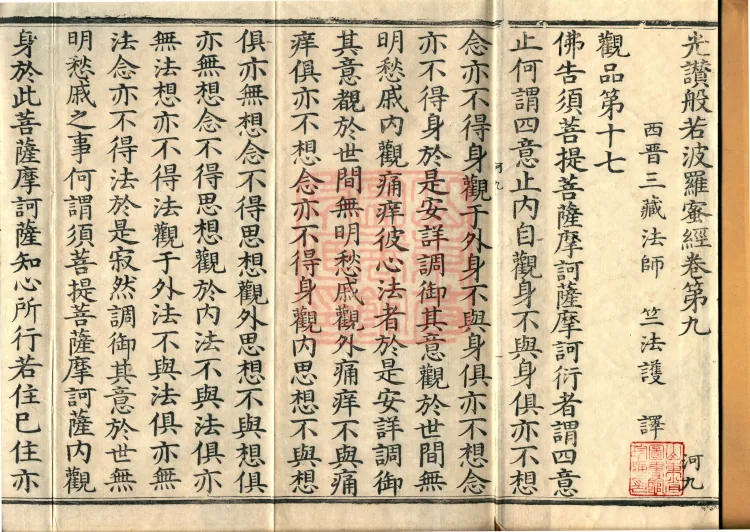 光讃般若波羅蜜經卷第九
河九
西晋三藏法師 竺法護 譯
觀品第十七
佛告須菩提菩薩摩訶薩摩訶衍者謂四意
止何謂四意止內自觀身不與身俱亦不想
河九
念亦不得身觀于外身不與身俱亦不想念
亦不得身於是安詳調御其意觀於世間無
明愁戚內觀痛痒彼心法者於是安詳調御
其意覩於世間無明愁戚觀外痛痒不與痛
痒俱亦不想念亦不得身觀內思想不與想
俱亦無想念不得思想觀外思想不與想俱
亦無想念不得思想觀於內法不與法俱亦
無法想亦不得法觀于外法不與法俱亦無
法念亦不得法於是寂然調御其意於世無
明愁戚之事何謂須菩提菩薩摩訶薩內觀
身於此菩薩摩訶薩知心所行若住已住亦